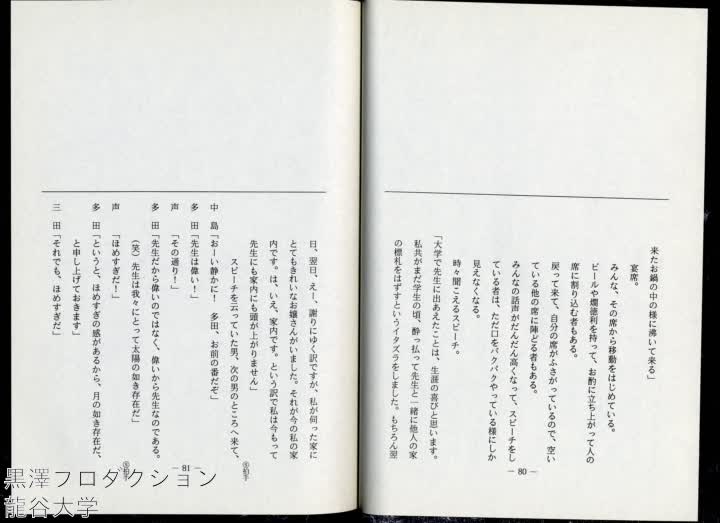 来たお鍋の中の様に沸いて来る」
宴席。
みんな、その席から移動をはじめている。
ビールや燗徳利を持って、お酌に立ち上がって人の
席に割り込む者もある。
戻って来て、自分の席がふさがっているので、空い
ている他の席に陣どる者もある。
みんなの話声がだんだん高くなって、スピーチをし
ている者は、ただ口をパクパクやっている様にしか
見えなくなる。
時々聞こえるスピーチ。
「大学で先生に出あえたことは、生涯の喜びと思います。
私共がまだ学生の頃、酔っ払って先生と一緒に他人の家
の標札をはずすというイタズラをしました。もちろん翌
― 80 ―
日、翌日、えー、謝りにゆく訳ですが、私が伺った家に
とてもきれいなお嬢さんがいました。それが今の私の家
内です。は、いえ、家内です。という訳で私は今もって
先生にも家内にも頭が上がりません」
スピーチを云っていた男、次の男のところへ来て、
中 島「おーい静かに! 多田、お前の番だぞ」
多 田「先生は偉い!」
声 「その通り!」
多 田「先生だから偉いのではなく、偉いから先生なのである。
(笑)先生は我々にとって太陽の如き存在だ」
声 「ほめすぎだ!」
多 田「というと、ほめすぎの感があるから、月の如き存在だ、
と申し上げておきます」
三 田「それでも、ほめすぎだ」
― 81 ―
拍手
拍手
黒澤プロダクション
龍谷大学